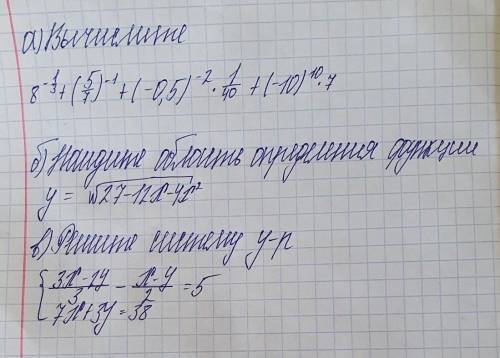 а) Вычислите
8^{-1/3} + (5/7)^{-1} + (-0,5)^{-2} · 1/40 + (-10)^{10} · 7
б) Найдите область определения функции
y = √(27-12x-4x²)
в) Решите систему у-р
{ (3x-2y)/3 - (x-y)/2 = 5
7x+3y=38